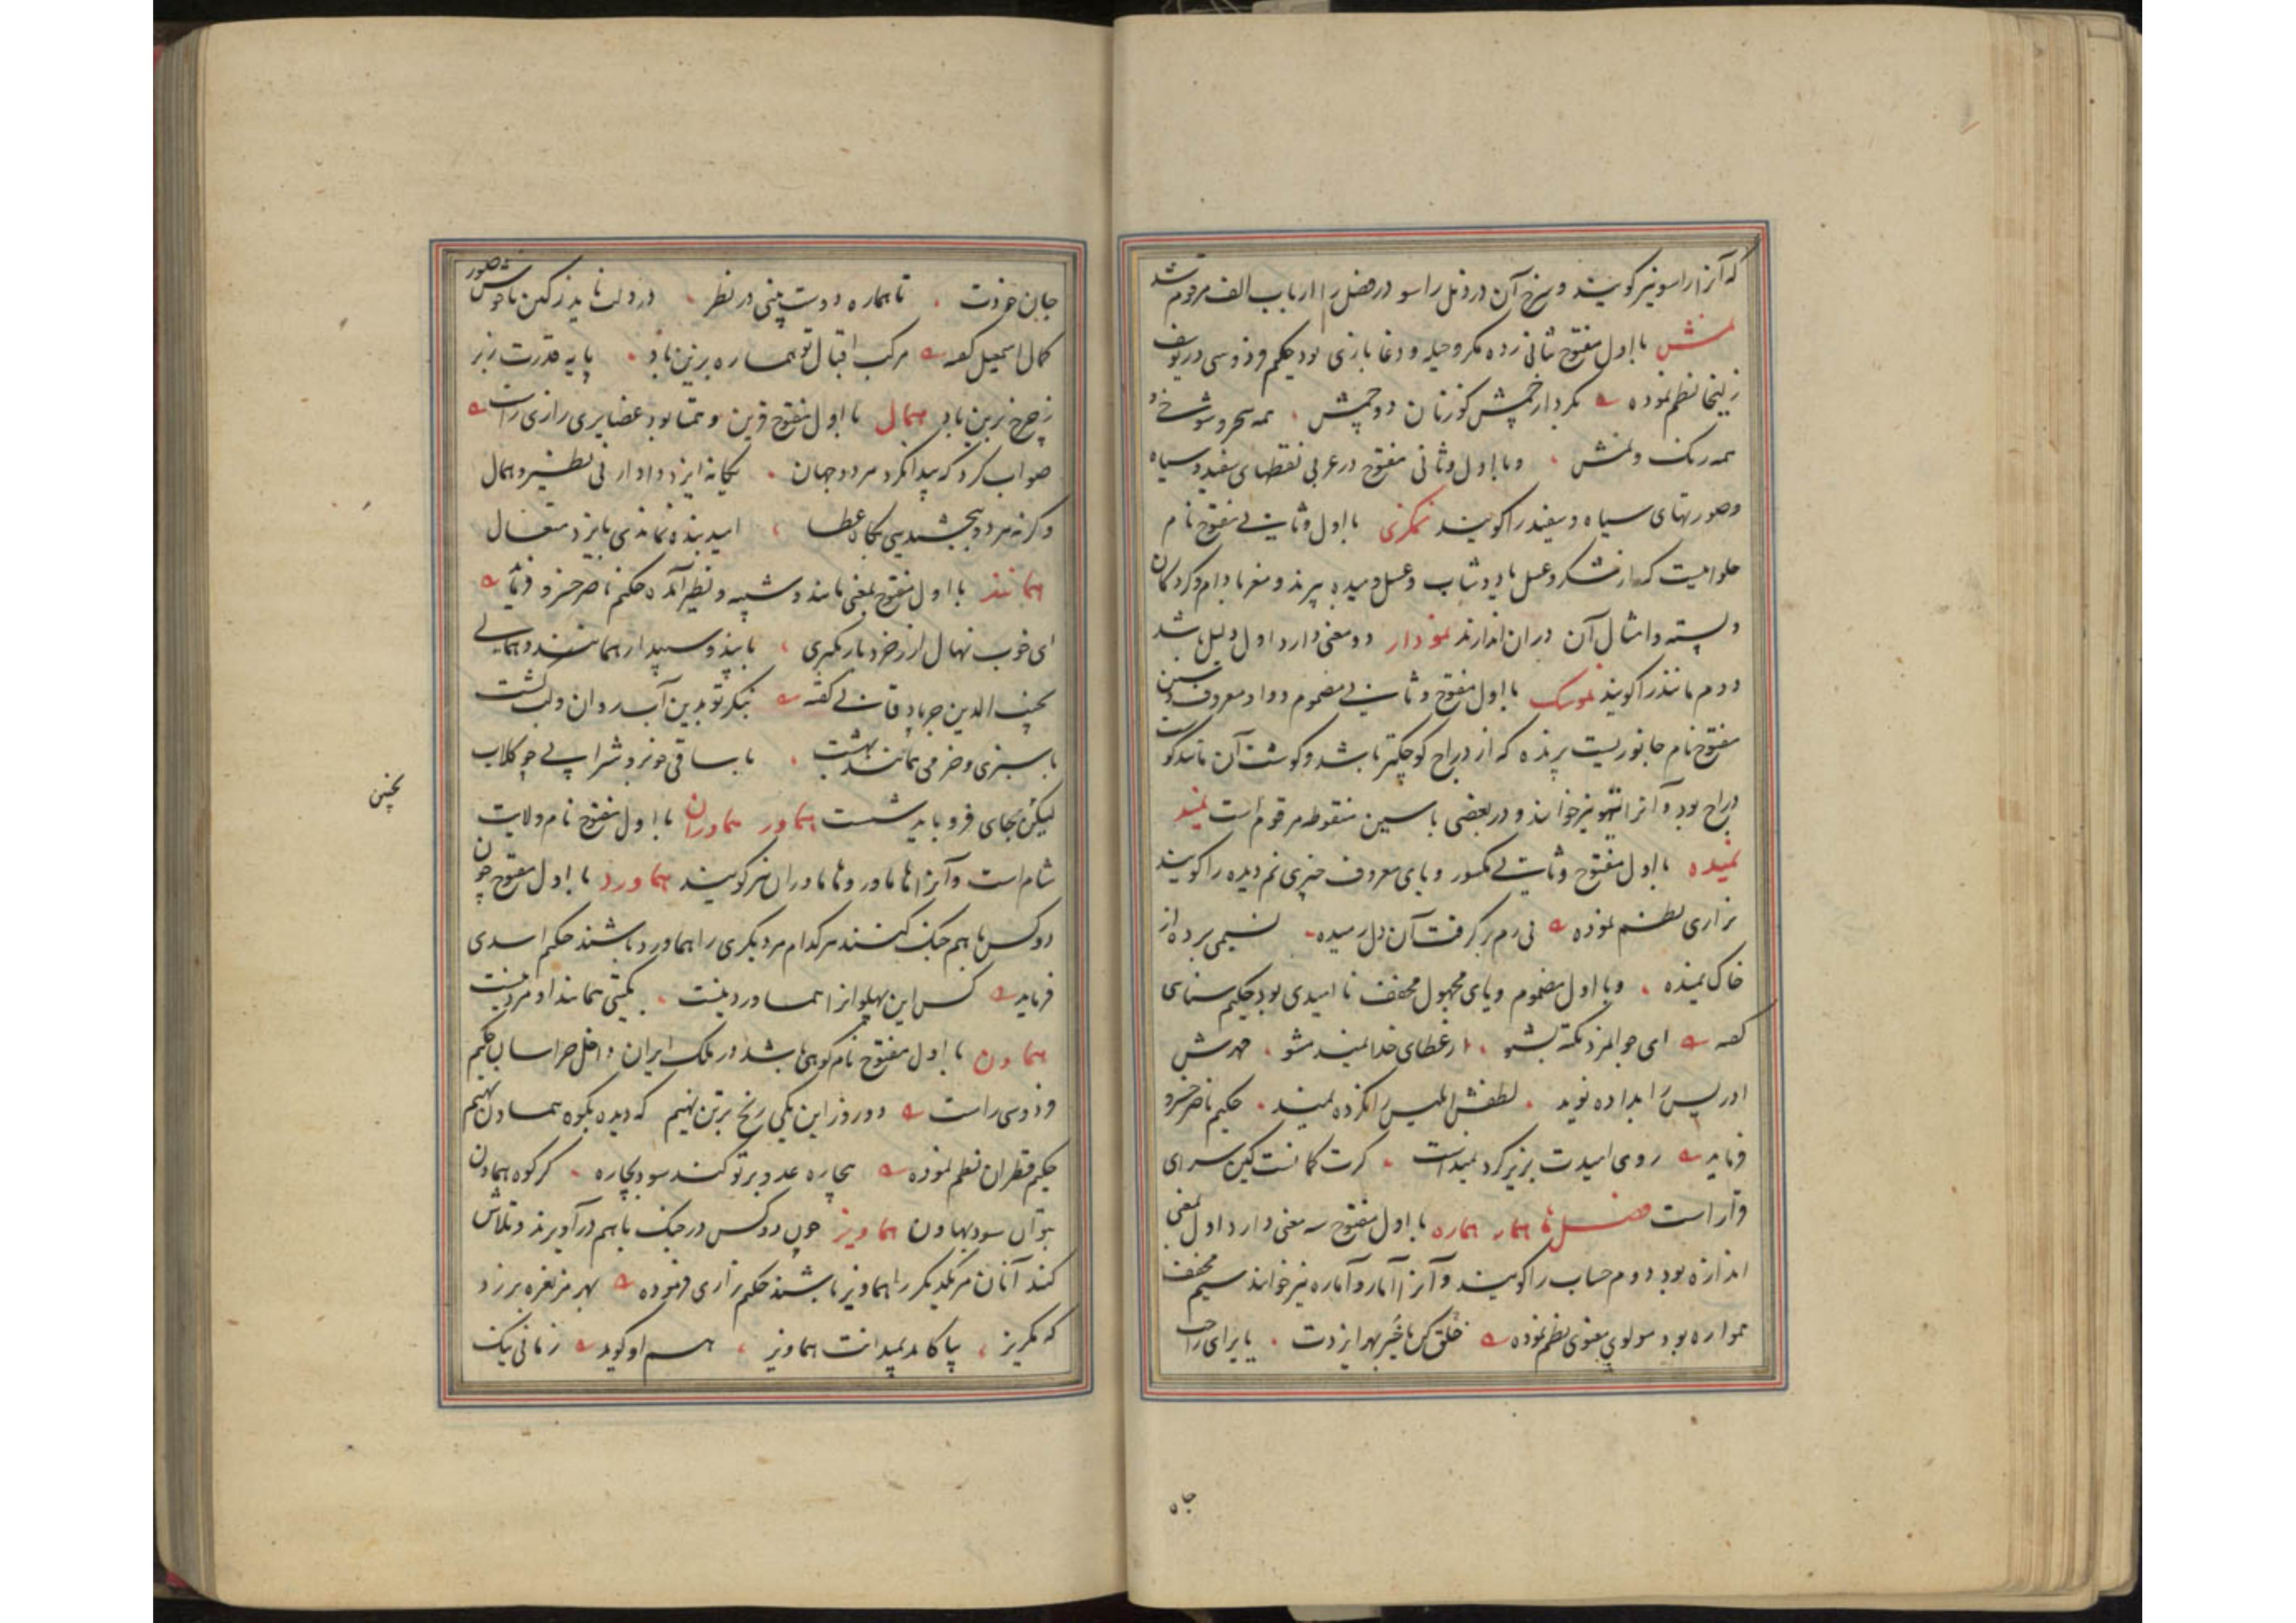 که آنرا راسو نیز گویند و شرح آن در ذیل راسو در فصل را از باب الف مرقوم شد
نمش با اول مفتوح بثانی زده مکر و حیله و دغا بازی بود حکیم فردوسی در یوسف
زلیخا نظم نموده بکردار چمش گوزنان دو چمش همه سحر و شوخی و
همه رنگ و نمش و با اول و ثانی مفتوح در عربی نقطهای سفید و سیاه
و صورتهای سیاه و سفید را گویند با اول و ثانی مفتوح نام
حلوائیست که از شکر و عسل یا دوشاب و عسل و میده پزند و مغز بادام و گردکان
و پسته و امثال آن در آن اندازند نمودار دو معنی دارد اول دلیل باشد
دوم مانند را گویند نموسک با اول مفتوح و ثانی مضموم و واو معروف و سین
مفتوح نام جانوریست پرنده که از دراج کوچکتر باشد و گوشت آن مانند گوشت
دراج بود و آنرا تیهو نیز خوانند و در بعضی با سین منقوطه مرقوم است نمید
نمیده با اول مفتوح و ثانی مکسور و یای معروف چیزی نم دیده را گویند
نزاری نظم نموده نی رم بر گرفت آن دل رمیده نسیمی برده از
خاک نمیده و با اول مضموم و یای مجهول مخفف ناامیدی بود حکیم سنائی
گفته ای جوانمرد نکته بشنو از عطای خدا نمید مشو مهرش
ادریس را بداده نوید لطفش ابلیس را نکرده نمید حکیم ناصر خسرو
فرماید روی امیدت بزیر گرد نمیدیست گرت گمانست کین سرای
قرار است فصل ها همار هماره با اول مفتوح سه معنی دارد اول بمعنی
اندازه بود دوم حساب را گویند و آنرا آمار و آماره نیز خوانند سیم مخفف
همواره بود مولوی معنوی نظم نموده خلق کن با خیر بهر ایزدت یا برای راحت
جان خودت تا هماره دوست بینی در نظر در دلت ناید ز کین ناخوش صور
کمال اسمعیل گفته مرکب اقبال تو هماره بزین باد پایه قدرت زبر
ز چرخ برین باد همال با اول مفتوح قرین و همتا بود عضایری رازی راست
صواب کرد که پیدا نکرد هر دو جهان یگانه ایزد دادار بی نظیر و همال
وگرنه هر دو ببخشیدی بگاه عطا امید بنده نماندی بایزد متعال
همانند با اول مفتوح بمعنی مانند و شبیه و نظیر آمده حکیم ناصر خسرو فرماید
ای خوب نهال ار ز خرد بار نگیری با بید و سپیدار همانند و همالی
نجیب الدین جربادقانی گفته بنگر تو بدین آب روان و لب کشت
با سبزی و خرمی همانند بهشت با ساقی خوبرو شرابی چو گلاب
لیکن بجای فرو باید شست هماور هماوران با اول مفتوح نام ولایت
شام است و آنرا هاماور و هاماوران نیز گویند هماورد با اول مفتوح چون
دو کس با هم جنگ کنند هر کدام مر دیگری را هماورد باشند حکیم اسدی
فرماید کس این پهلوانرا هماورد نیست بگیتی همانند او مرد نیست
هماون با اول مفتوح نام کوهی باشد در ملک ایران داخل خراسان حکیم
فردوسی راست دو روز این یکی رنج برتن نهیم که دیده بکوه هماون نهیم
حکیم قطران نظم نموده بیچاره عدو بر تو کند سود بچاره گر کوه هماون
بتوان سود بهاون هماویز چون دو کس در جنگ با هم درآویزند و تلاش
کنند آنان مر یکدیگر را هماویز باشند حکیم نزاری فرموده بهر مز نعره برزد
که مگریز بپا کامد بمیدانت هماویز هم او گوید زمانی یک
نجیب
جان